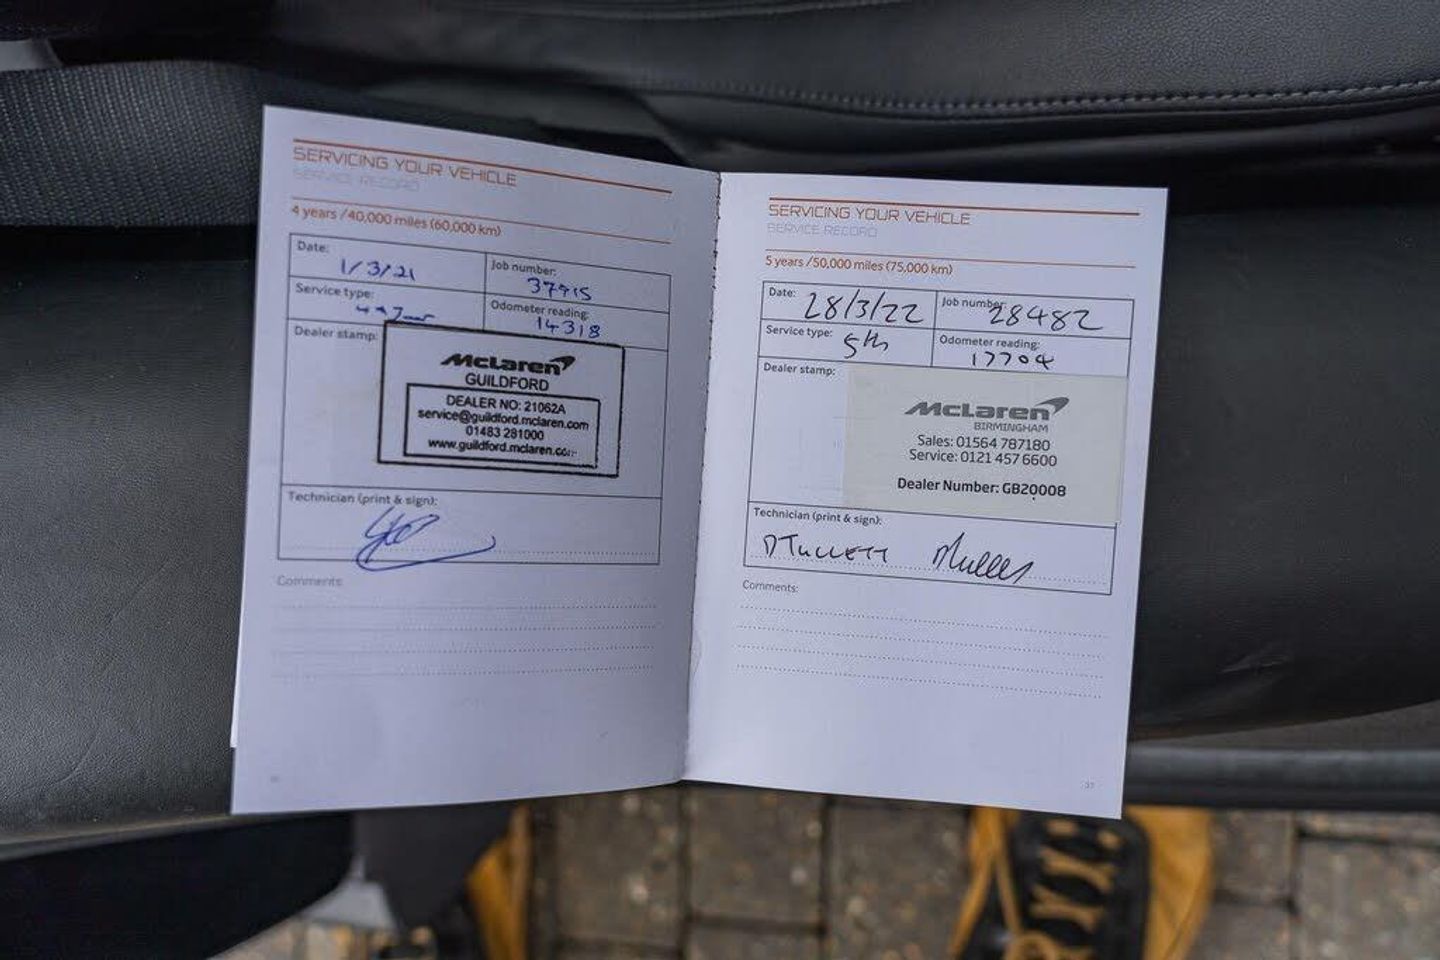 SERVICING YOUR VEHICLE
SERVICE RECORD
4 years /40,000 miles (60,000 km)
Date: 1/3/21
Job number: 37915
Service type: 4th Year
Odometer reading: 14318
Dealer stamp:
McLaren
GUILDFORD
DEALER NO: 21062A
service@guildford.mclaren.com
01483 281000
www.guildford.mclaren.com
Technician (print & sign):
Comments:
SERVICING YOUR VEHICLE
SERVICE RECORD
5 years /50,000 miles (75,000 km)
Date: 28/3/22
Job number: 28482
Service type: 5th
Odometer reading: 17704
Dealer stamp:
McLaren
BIRMINGHAM
Sales: 01564 787180
Service: 0121 457 6600
Dealer Number: GB20008
Technician (print & sign):
D TULLETT
Comments: